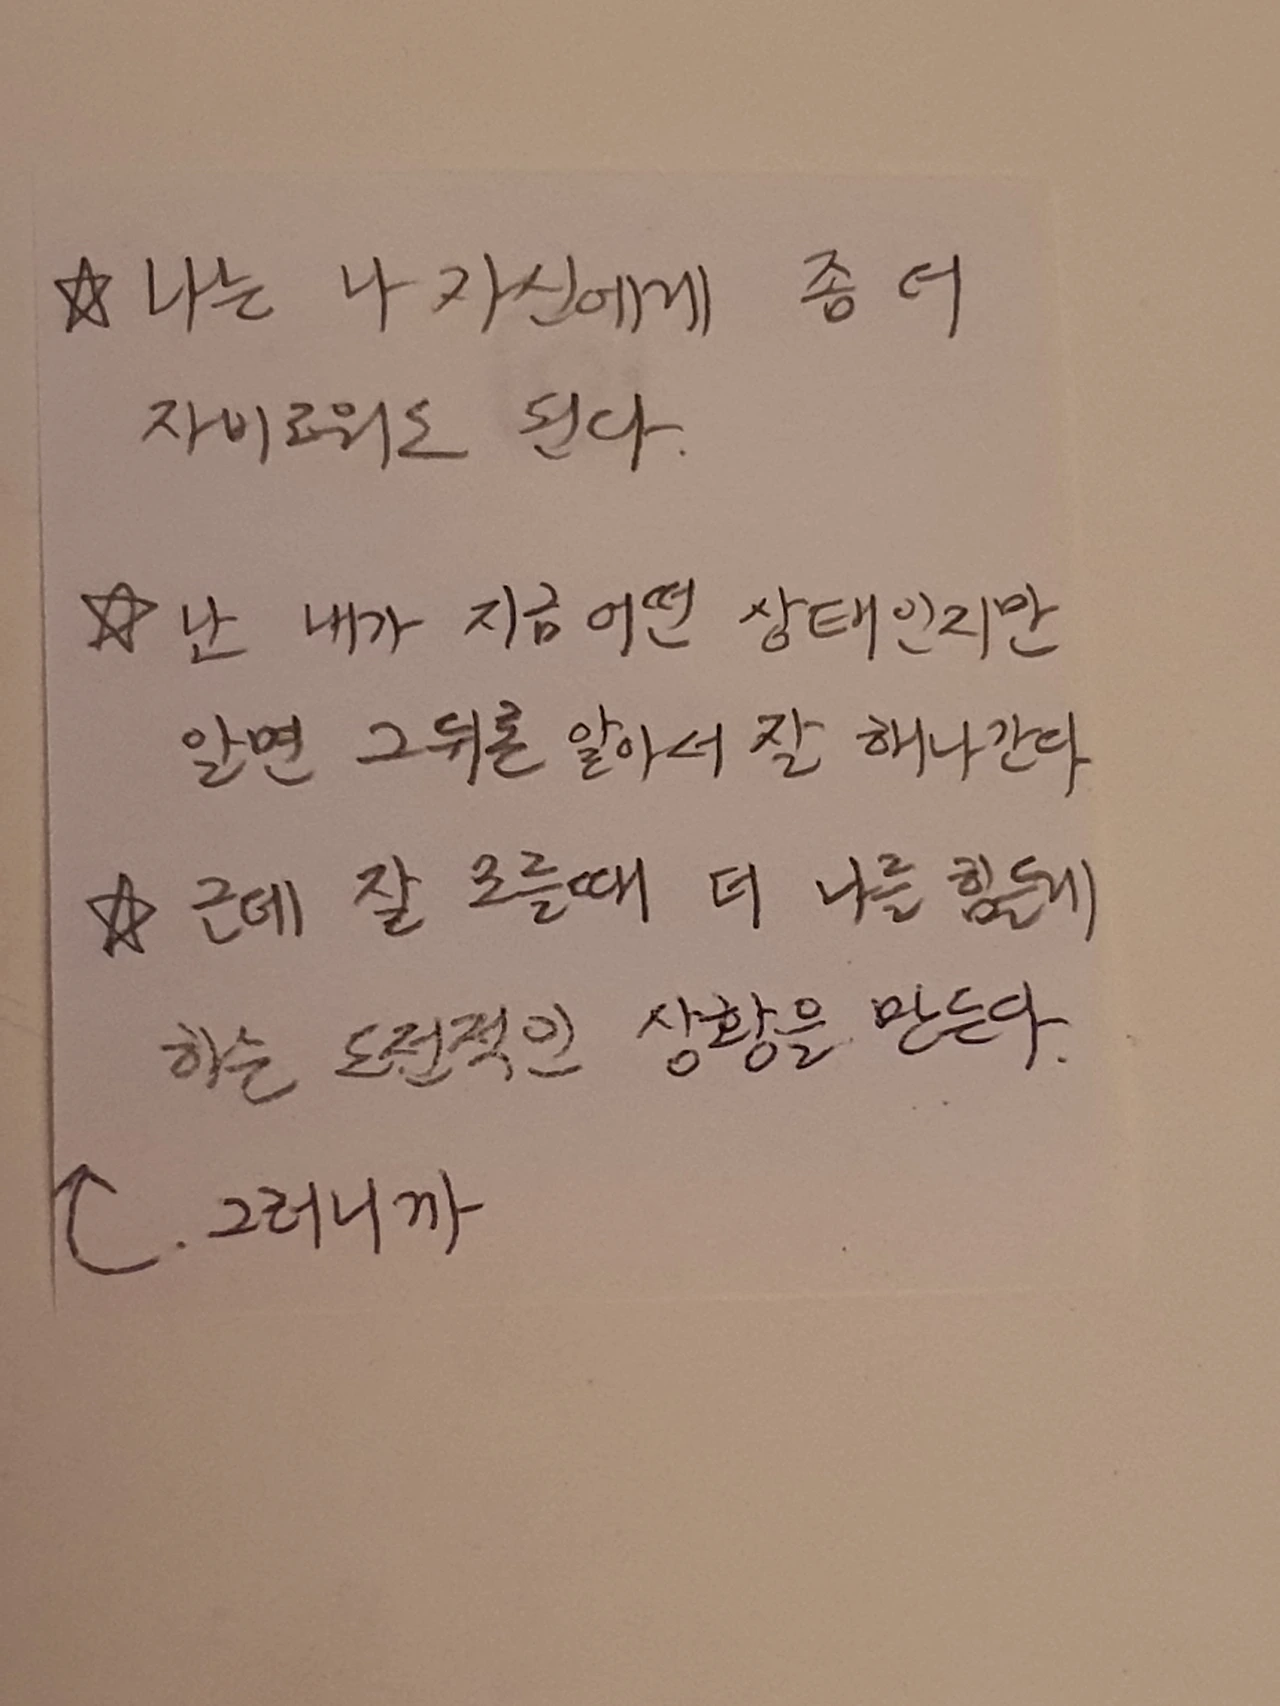 ☆ 나는 나 자신에게 좀 더
자비로워도 된다.
☆ 난 내가 지금 어떤 상태인지만
알면 그 뒤론 알아서 잘 해나간다
☆ 근데 잘 모를때 더 나를 힘들게
하는 도전적인 상황을 만든다.
. 그러니까